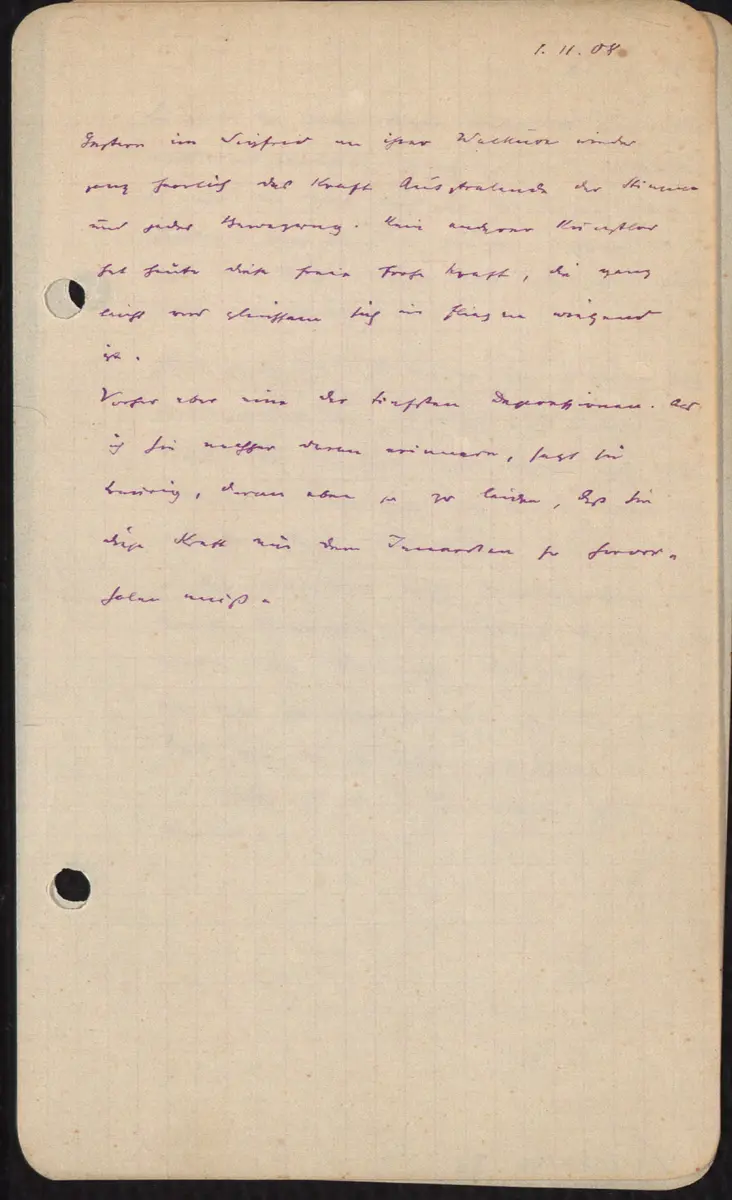 1. 11. 08
Gestern im Siegfried an ihrer Walküre wieder
ganz herrlich das Kraft Ausstralende der Stimme
und jeder Bewegung. Kein anderer Künstler
hat heute diese freie Kraft, die ganz
leicht und gleichsam sich im fliegen wiegend
ist.
Vorher aber eine der tiefsten Depressionen. Als
ich sie nachher daran erinnere, sagt sie
traurig, daran eben ja zu leiden, daß sie
diese Kraft aus dem Innersten so hervor-
holen muß.